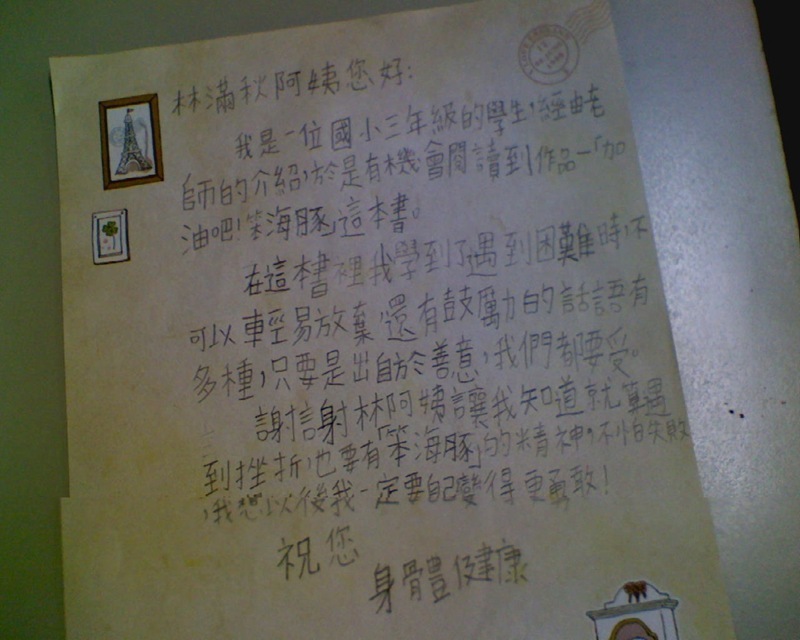 林滿秋阿姨您好:
我是一位國小三年級的學生,經由老
師的介紹,於是有機會閱讀到作品一「加
油吧!笨海豚」這本書。
在這本書裡我學到了遇到困難時,不
可以輕易放棄,還有鼓勵的話語有
多種,只要是出自於善意,我們都要受。
謝謝林阿姨讓我知道就算遇
到挫折,也要有「笨海豚」的精神,不怕失敗
,我想以後我一定要自己變得更勇敢!
祝您
身體健康